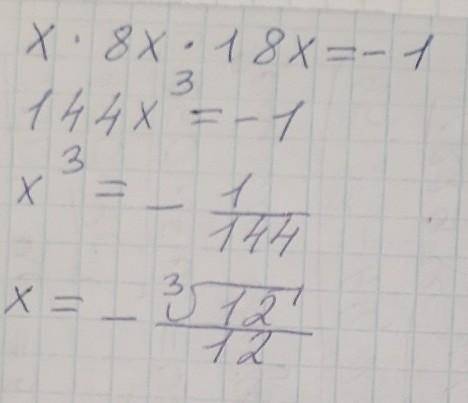 x · 8x · 18x = - 1
144x³ = - 1
x³ = - 1/144
x = - ∛12/12